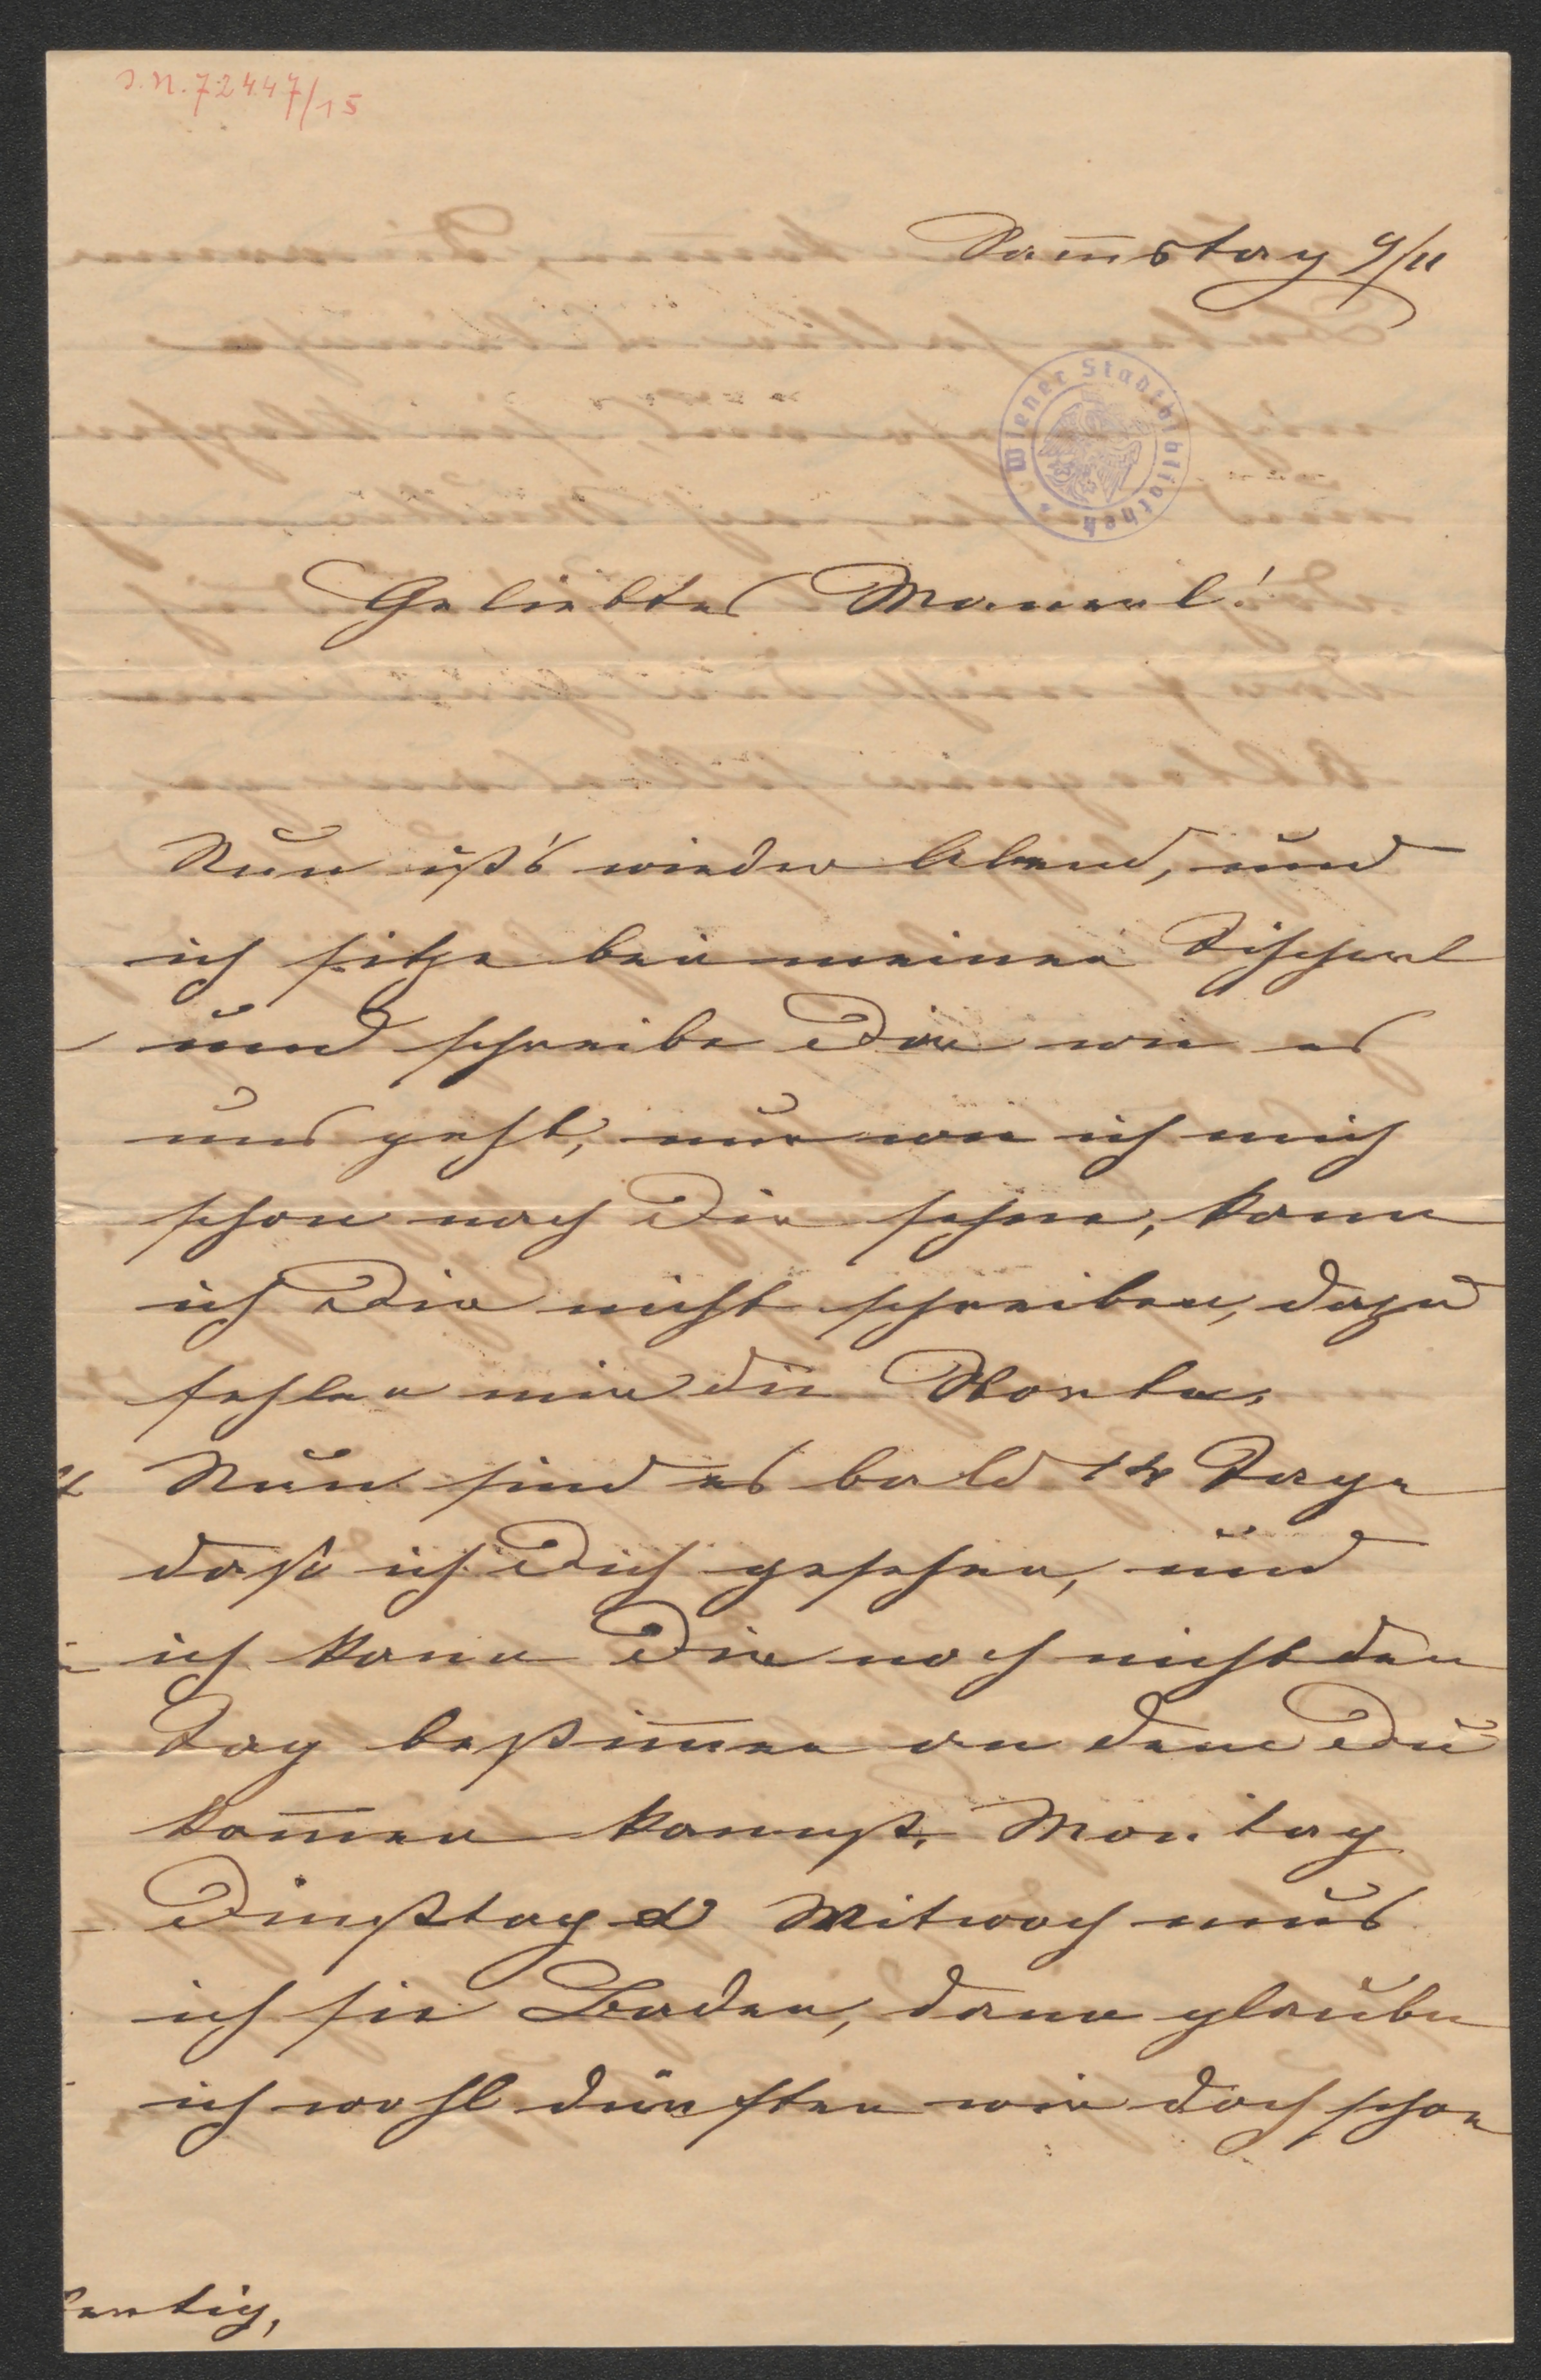 J. N. 72447/15
Sam̅stag 9/11
Wiener Stadtbibliothek
Geliebtes Manerl!
Nun ist's wieder Abend, und
ich sitze bei meinen Tischerl
und schreibe Dir wie es
uns geht, nur wie ich mich
schon nach Dir sehne, kann
ich Dir nicht schreiben, dazu
fehlen mir die Worte.
Nun sind es bald 14 Tage
daß ich Dich gesehen, und
ich kann Dir noch nicht den
Tag bestim̅en an dem Du
kom̅en kannst. Montag
Dinstag & Mitwoch mus
ich sie Baden, dann glaube
ich wohl dürften wir doch schon